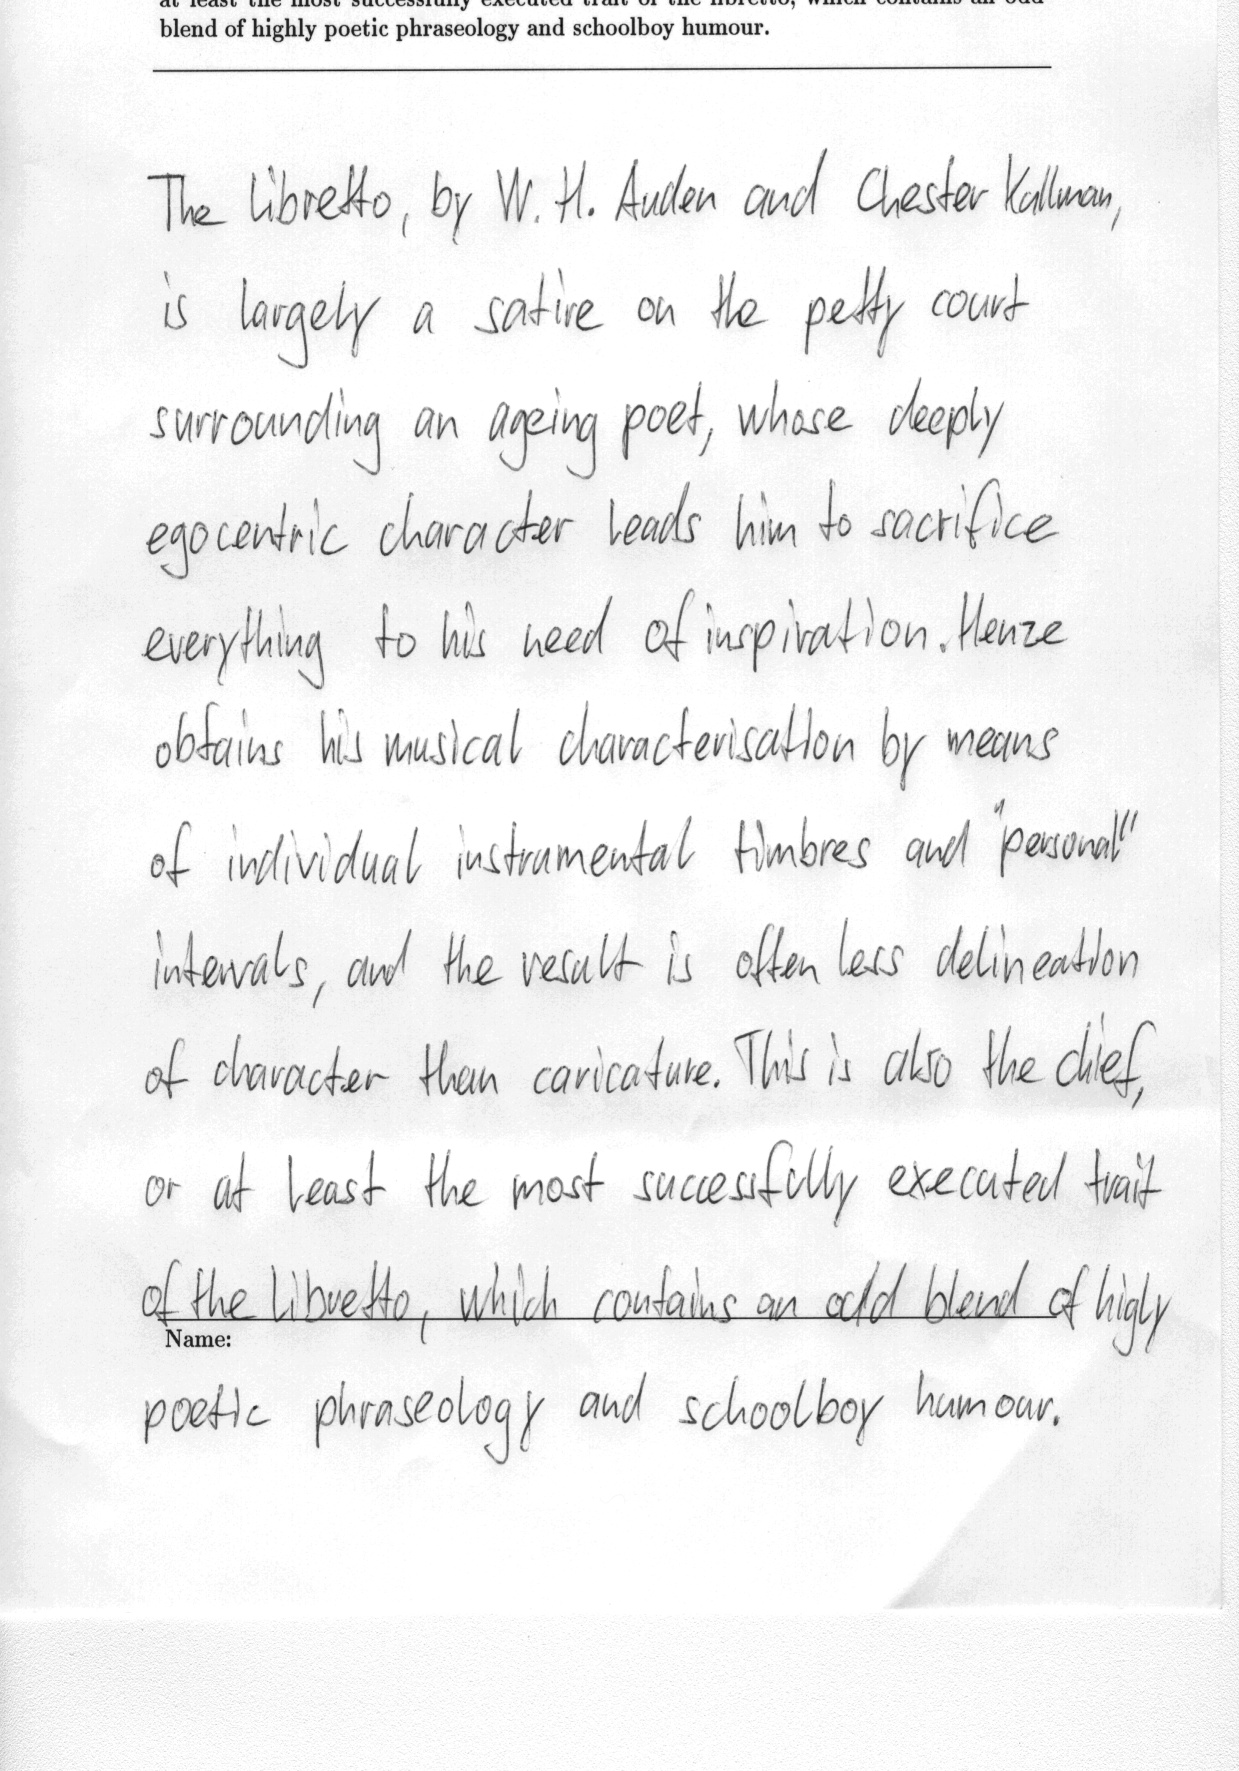 at least the most successfully executed trait of the libretto, which contains an odd
blend of highly poetic phraseology and schoolboy humour.
The libretto, by W. H. Auden and Chester Kallman,
is largely a satire on the petty court
surrounding an ageing poet, whose deeply
egocentric character leads him to sacrifice
everything to his need of inspiration. Henze
obtains his musical characterisation by means
of individual instrumental timbres and "personal"
intervals, and the result is often less delineation
of character than caricature. This is also the chief,
or at least the most successfully executed trait
of the libretto, which contains an odd blend of higly
Name:
poetic phraseology and schoolboy humour.